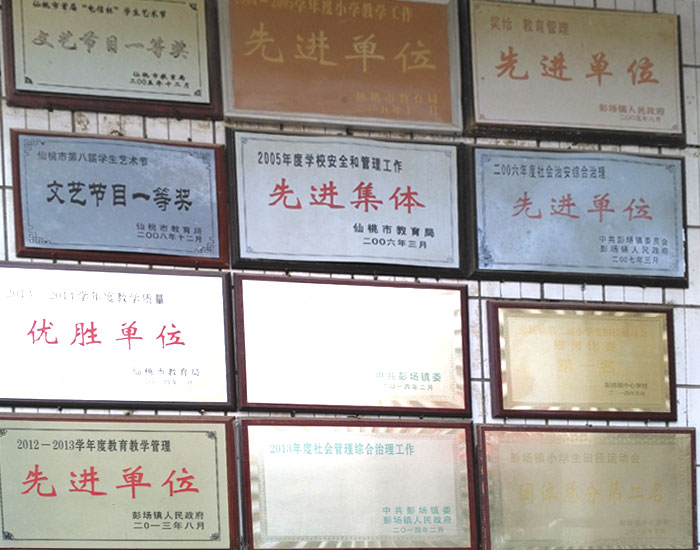 仙桃市首届"电信杯"学生艺术节
文艺节目一等奖
仙桃市教育局
二00五年十二月
2004-2005学年度小学教学工作
先进单位
仙桃市教育局
奖给 教育管理
先进单位
彭场镇人民政府
二00五年八月
仙桃市第八届学生艺术节
文艺节目一等奖
仙桃市教育局
二00八年十二月
2005年度学校安全和管理工作
先进集体
仙桃市教育局
二00六年三月
二00六年度社会治安综合治理
先进单位
中共彭场镇委员会
彭场镇人民政府
二00七年三月
2013-2014学年度教学质量
优胜单位
仙桃市教育局
中共彭场镇委
二0一四年二月
彭场镇中心学校
2012-2013学年度教育教学管理
先进单位
彭场镇人民政府
二0一三年八月
2013年度社会管理综合治理工作
中共彭场镇委
彭场镇人民政府
二0一四年二月
彭场镇小学生田径运动会
团体总分第二名
彭场镇中心学校